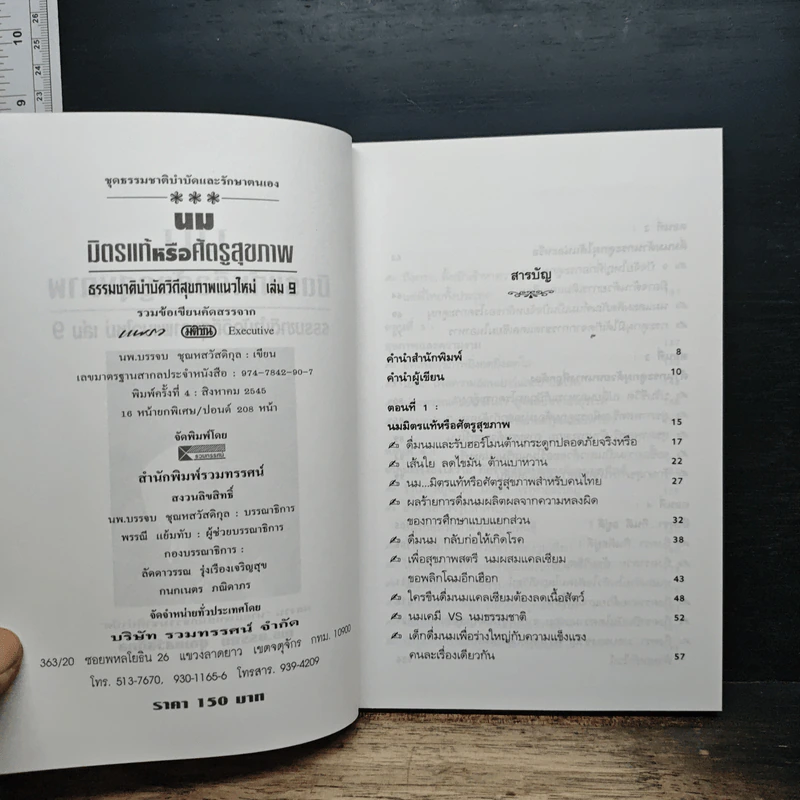 10
9
26
25
24
23
ชุดธรรมชาติบำบัดและรักษาตนเอง
นม
มิตรแท้หรือศัตรูสุขภาพ
ธรรมชาติบำบัดวิถีสุขภาพแนวใหม่ เล่ม 9
รวมข้อเขียนคัดสรรจาก
แพรว มติชน Executive
นพ.บรรจบ ชุณหสวัสดิกุล : เขียน
เลขมาตรฐานสากลประจำหนังสือ : 974-7842-90-7
พิมพ์ครั้งที่ 4 : สิงหาคม 2545
16 หน้ายกพิเศษ/ปอนด์ 208 หน้า
จัดพิมพ์โดย
รวมทรรศน์
สำนักพิมพ์รวมทรรศน์
สงวนลิขสิทธิ์
นพ.บรรจบ ชุณหสวัสดิกุล : บรรณาธิการ
พรรณี แย้มทับ : ผู้ช่วยบรรณาธิการ
กองบรรณาธิการ :
ลัดดาวรรณ รุ่งเรืองเจริญสุข
กนกเนตร ภณิดาภร
จัดจำหน่ายทั่วประเทศโดย
บริษัท รวมทรรศน์ จำกัด
363/20 ซอยพหลโยธิน 26 แขวงลาดยาว เขตจตุจักร กทม. 10900
โทร. 513-7670, 930-1165-6 โทรสาร. 939-4209
ราคา 150 บาท
สารบัญ
คำนำสำนักพิมพ์ 8
คำนำผู้เขียน 10
ตอนที่ 1 :
นมมิตรแท้หรือศัตรูสุขภาพ 15
ดื่มนมและรับฮอร์โมนต้านกระดูกปลอดภัยจริงหรือ 17
เส้นใย ลดไขมัน ต้านเบาหวาน 22
นม...มิตรแท้หรือศัตรูสุขภาพสำหรับคนไทย 27
ผลร้ายการดื่มนมผลิตผลจากความหลงผิด
ของการศึกษาแบบแยกส่วน 32
ดื่มนม กลับก่อให้เกิดโรค 38
เพื่อสุขภาพสตรี นมผสมแคลเซียม
ขอพลิกโฉมอีกเฮือก 43
ใครขืนดื่มนมแคลเซียมต้องลดเนื้อสัตว์ 48
นมเคมี VS นมธรรมชาติ 52
เด็กดื่มนมเพื่อร่างใหญ่กับความแข็งแรง
คนละเรื่องเดียวกัน 57